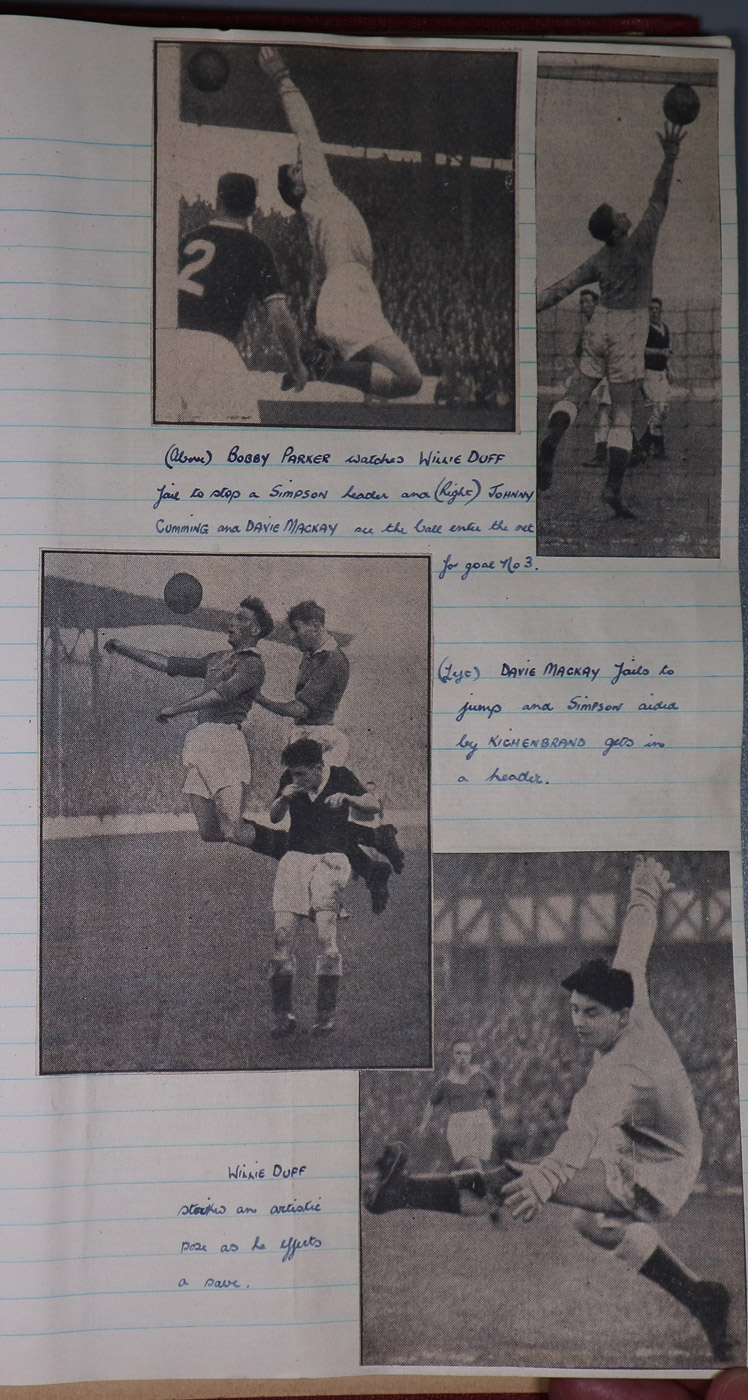 2
(Above) BOBBY PARKER watches WILLIE DUFF
fail to stop a SIMPSON header and (Right) JOHNNY
CUMMING and DAVIE MACKAY see the ball enter the net
for goal No 3.
(Left) DAVIE MACKAY fails to
jump and SIMPSON aided
by KICHENBRAND gets in
a header.
WILLIE DUFF
strikes an artistic
pose as he effects
a save.